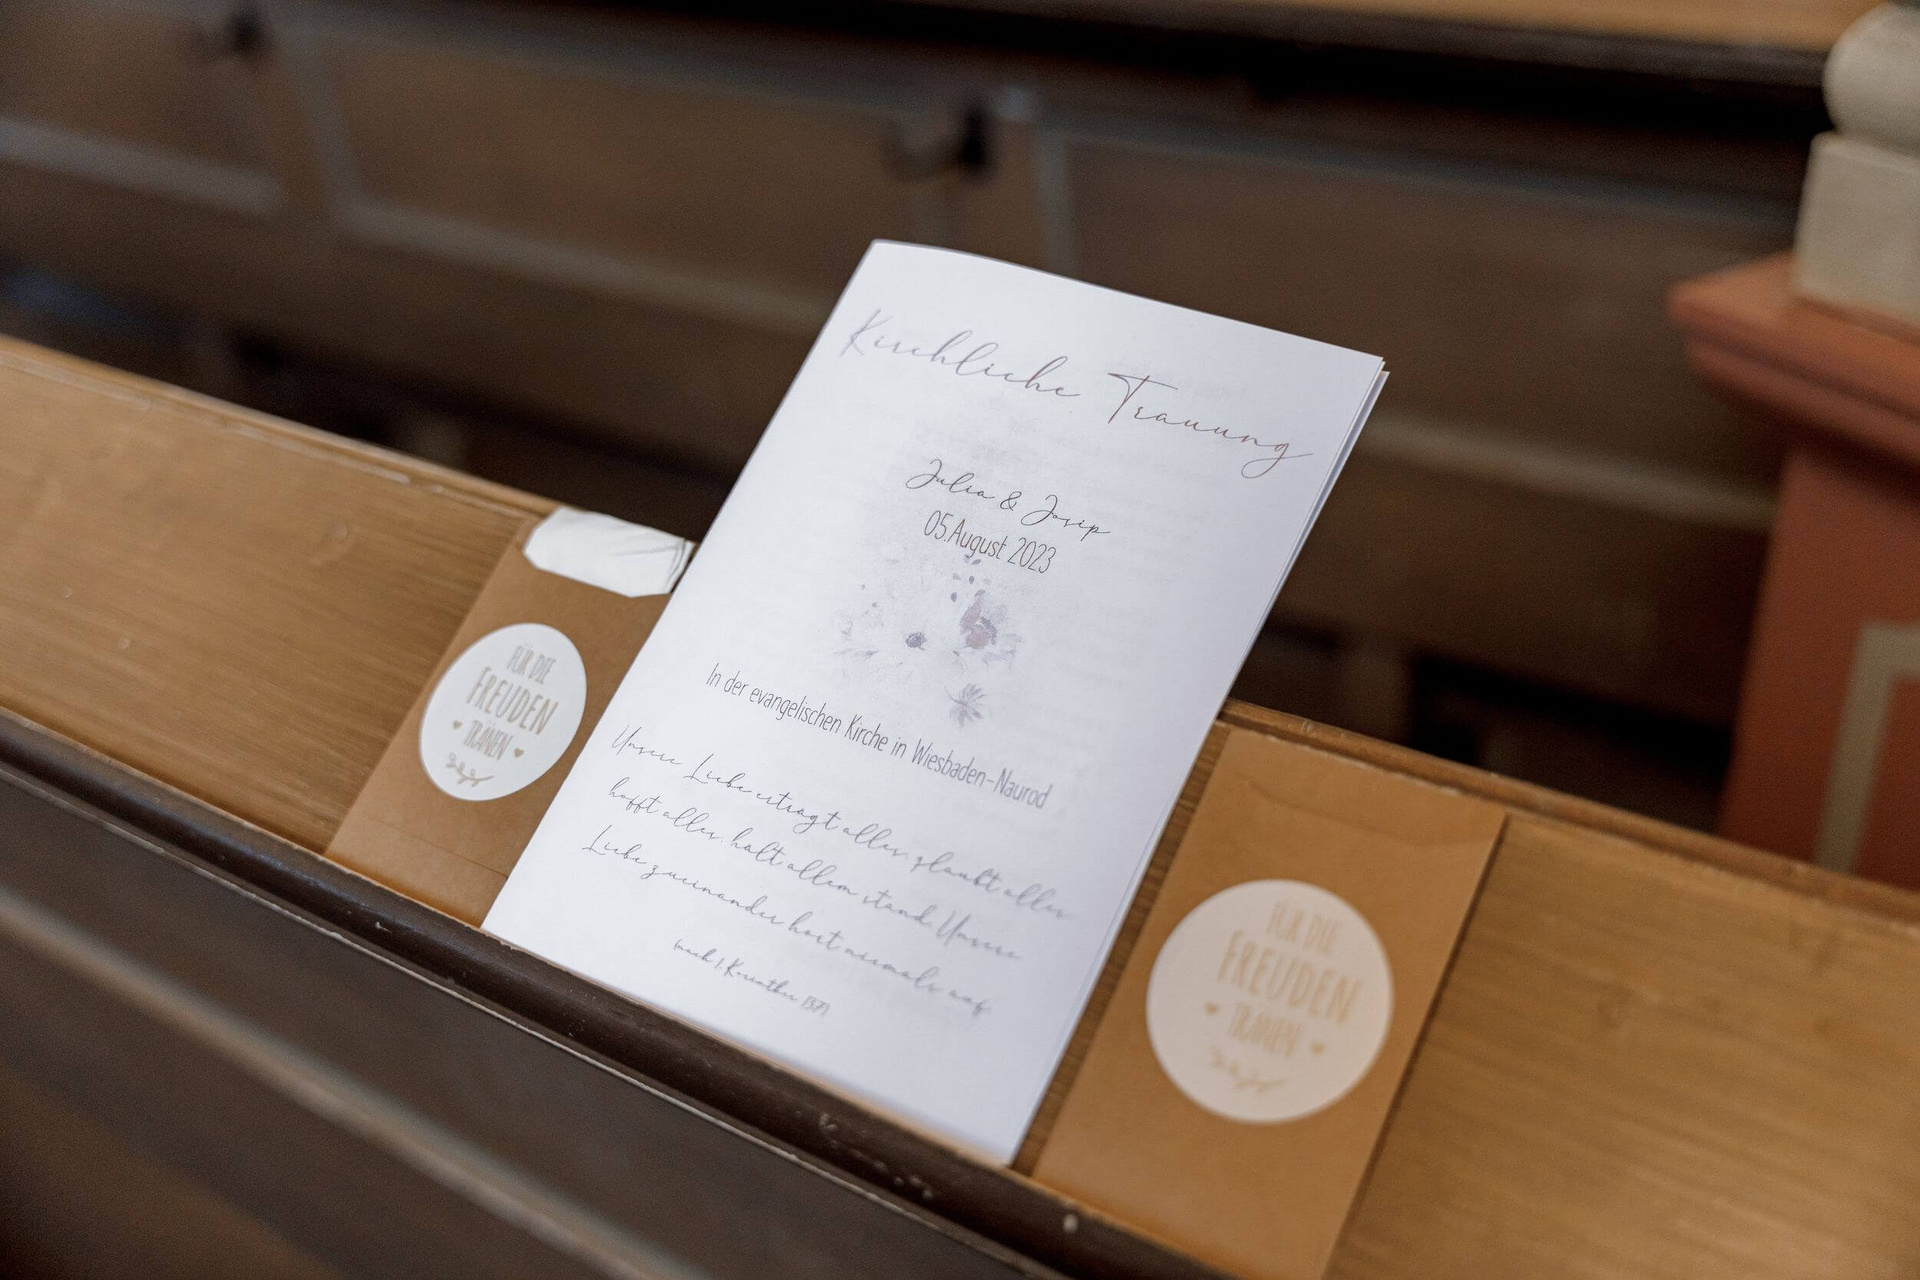 Kirchliche Trauung
Julia & Josip
05.August 2023
In der evangelischen Kirche in Wiesbaden-Naurod
Unsere Liebe erträgt alles, glaubt alles,
hofft alles, hält allem stand. Unsere
Liebe zueinander hört niemals auf.
(nach 1. Korinther 13,7)
FÜR DIE
FREUDEN
TRÄNEN
FÜR DIE
FREUDEN
TRÄNEN